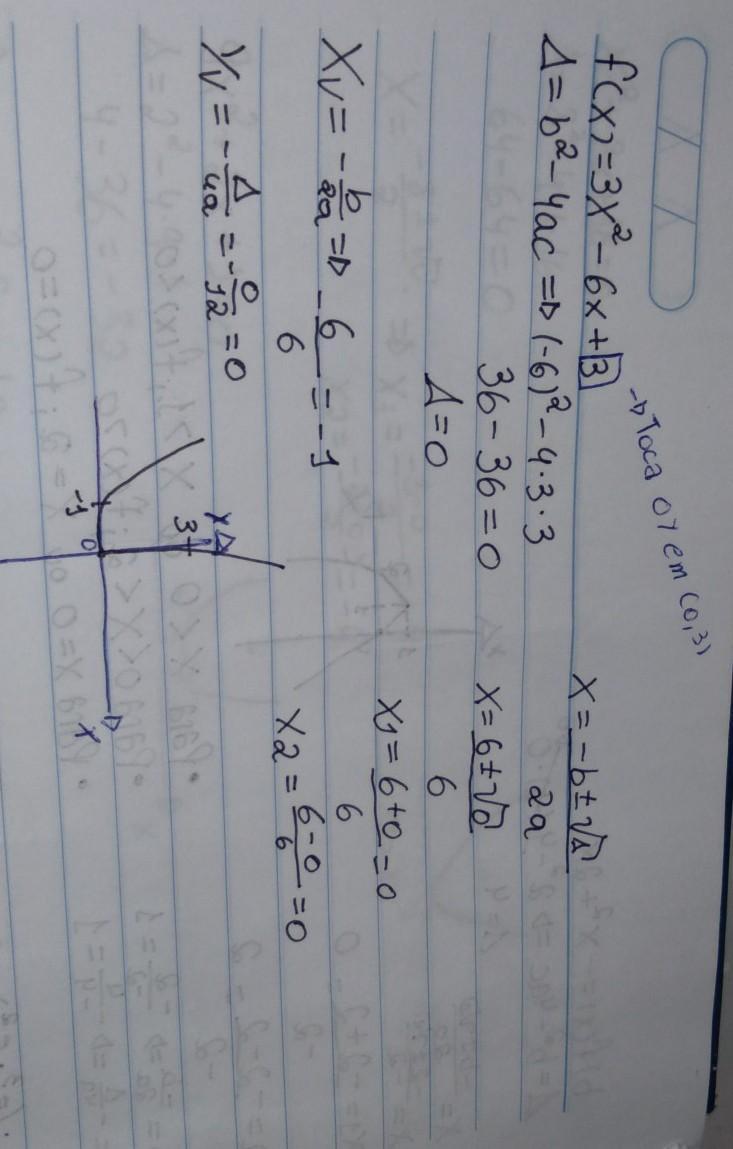 f(x) = 3x² - 6x + 3 → Toca OY em (0,3)
Δ = b² - 4ac => (-6)² - 4 · 3 · 3
36 - 36 = 0
Δ = 0
x = -b ± √Δ / 2a
x = 6 ± √0 / 6
x1 = 6 + 0 / 6 = 0
x2 = 6 - 0 / 6 = 0
Xv = - b/2a => - 6/6 = -1
Yv = - Δ/4a = - 0/12 = 0
Y
3
-1
0
X